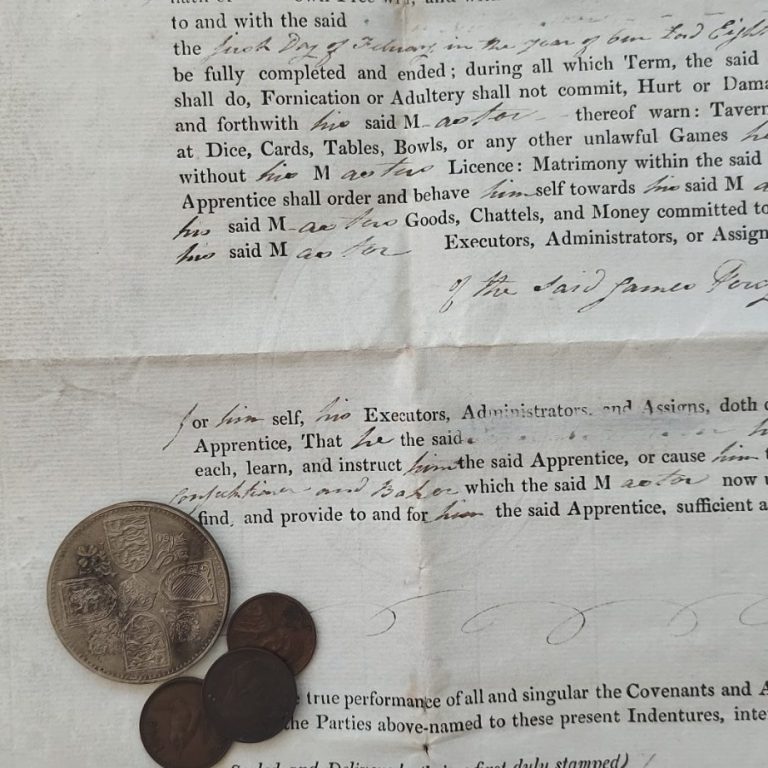 to and with the said
the first Day of February in the year of our Lord Eight
be fully completed and ended; during all which Term, the said
shall do, Fornication or Adultery shall not commit, Hurt or Dama
and forthwith his said M aster thereof warn: Tavern
at Dice, Cards, Tables, Bowls, or any other unlawful Games he
without his M asters Licence: Matrimony within the said
Apprentice shall order and behave him self towards his said M a
his said M asters Goods, Chattels, and Money committed to
his said M aster Executors, Administrators, or Assign
of the said James
for him self, his Executors, Administrators, and Assigns, doth
Apprentice, That he the said
each, learn, and instruct him the said Apprentice, or cause him
Confectioner and Baker which the said M aster now u
find, and provide to and for him the said Apprentice, sufficient a
true performance of all and singular the Covenants and A
the Parties above-named to these present Indentures, inte
Sealed and Delivered first duly stamped)